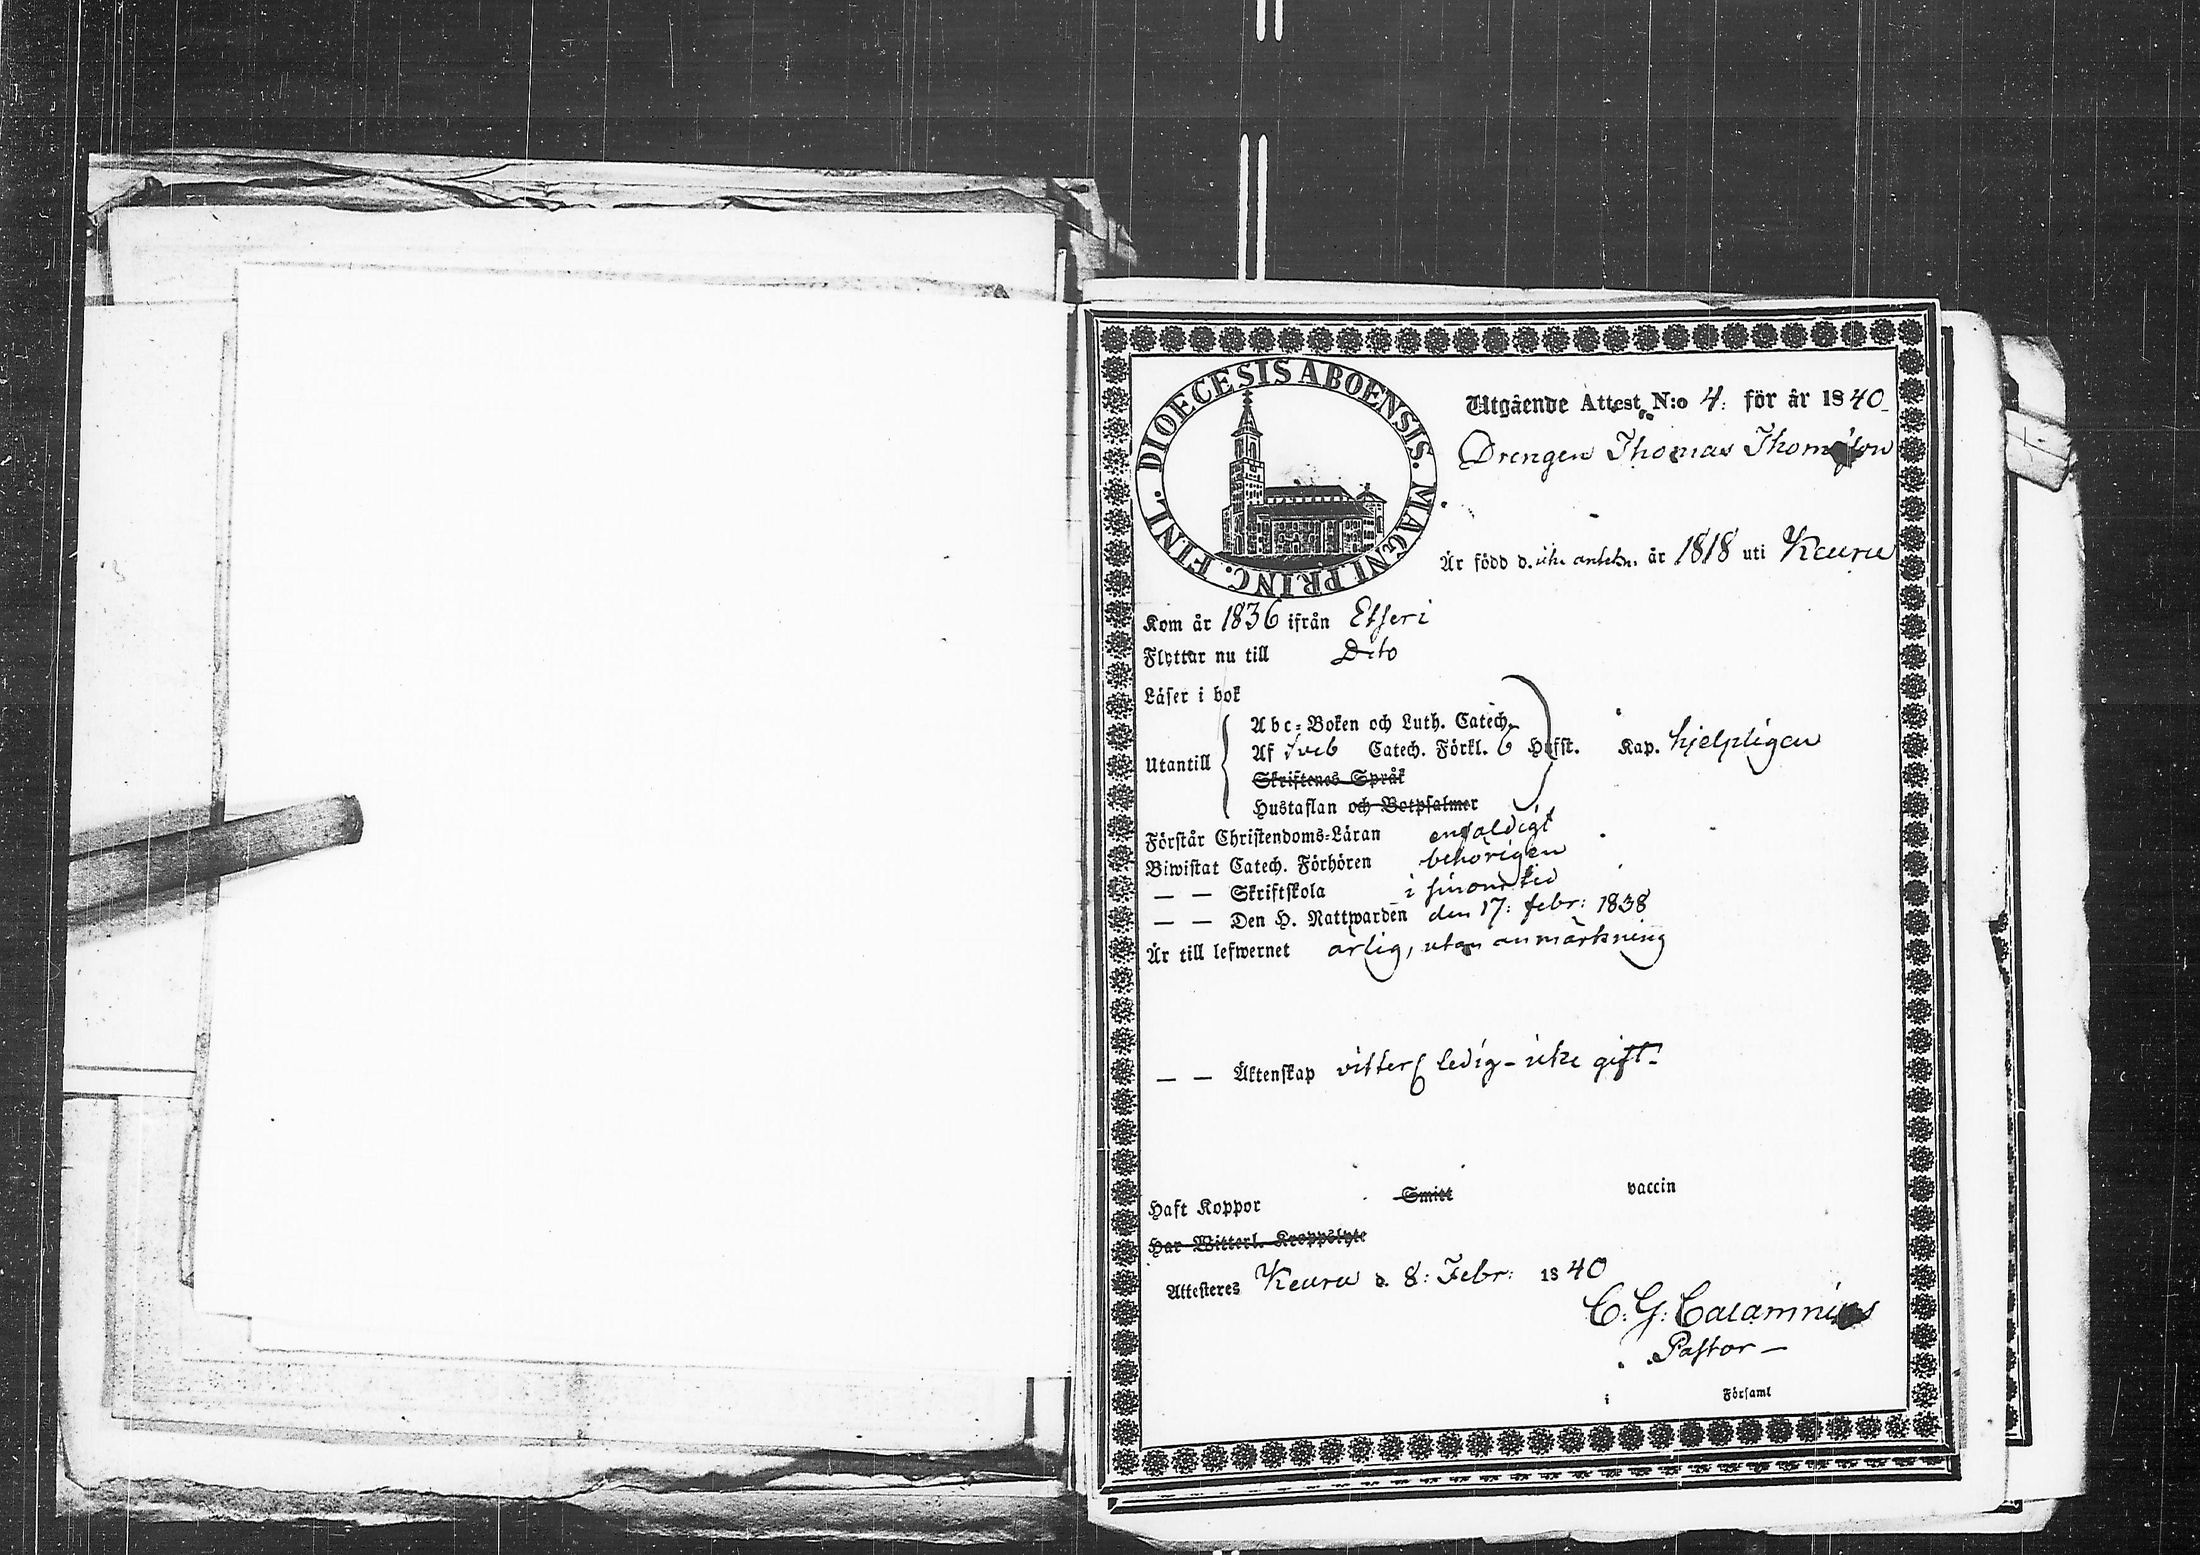 DIOECESIS ABOENSIS. MAGNI PRINC. FINL.
Utgående Attest N:o 4. för år 1840
Drengen Thomas Thomsson
Är född d. icke anteckn. år 1818 uti Keuru
Kom år 1836 ifrån Etseri
Flyttar nu till Dito
Läser i bok
Abc-Boken och Luth. Catech.
Utantill Af Sveb Catech. Förkl. 6 Hufst. Kap. hjelpligen
Skriftenes Språk
Hustaflan och Botpsalmer
Förstår Christendoms-Läran enfaldigt
Biwistat Catech. Förhören behörigen
— — Skriftskola i sinom tid
— — Den H. Nattwarden den 17: febr: 1838
Är till lefwernet ärlig, utan anmärkning
— — Äktenskap ledig - icke gift.
Haft Koppor Smitt vaccin
Har Witterl. Kroppslyte
Attesteres Keuru d. 8: Febr: 1840
C. G. Calamnius
Pastor —
i Församl